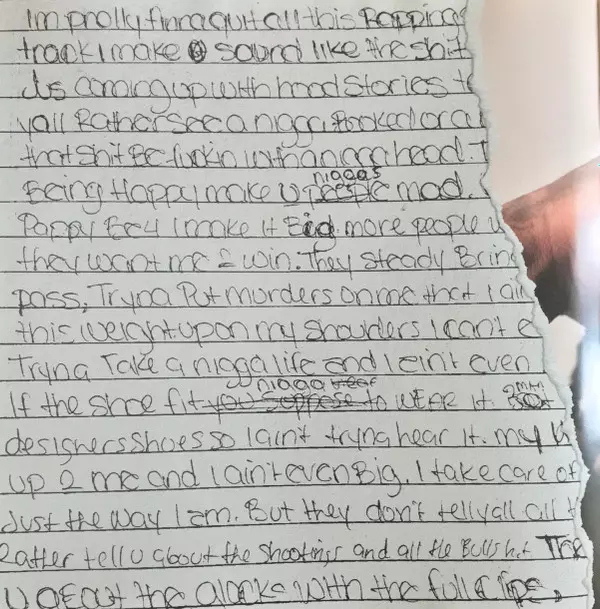 Im prolly finna quit all this Rapping
track I make sound like the shit
Is coming up with hood stories t
yall Rather see a nigga Booked or a
that shit Be fuckin with a nigga head. I
Being Happy make u niggas people mad.
Poppy Ec4 I make it Big more people
they want me 2 win. They steady Brin
pass, Tryna Put murders on me that I ain
this weight upon my shoulders I can't
Tryna Take a nigga life and I ain't even
If the shoe fit you suppose nigga to WEAR it.
designers shoes so I aint tryna hear it. my
up 2 me and I aint even Big. I take care of
Just the way I am. But they don't tell yall all t
Rather tell u about the shootings and all the Bullshit The
u about the glocks with the full clips,